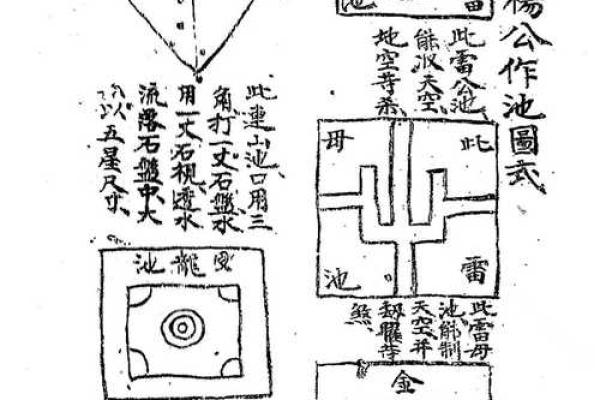 楊公作池圖式
雷
池
此雷公池
能收天空
地空等杀
此
雷
毋
池
此雷母
池能制
天空并
刼曜等
煞
金
此連山池口用三
角打一丈石盤水
用一丈石視透水
流落石盤中大
以五星尺寸
龍池